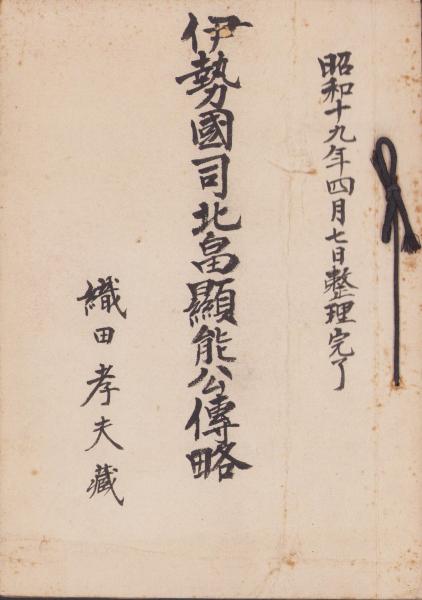 昭和十九年四月七日整理完了
伊勢國司北畠顯能公傳略
織田孝夫藏